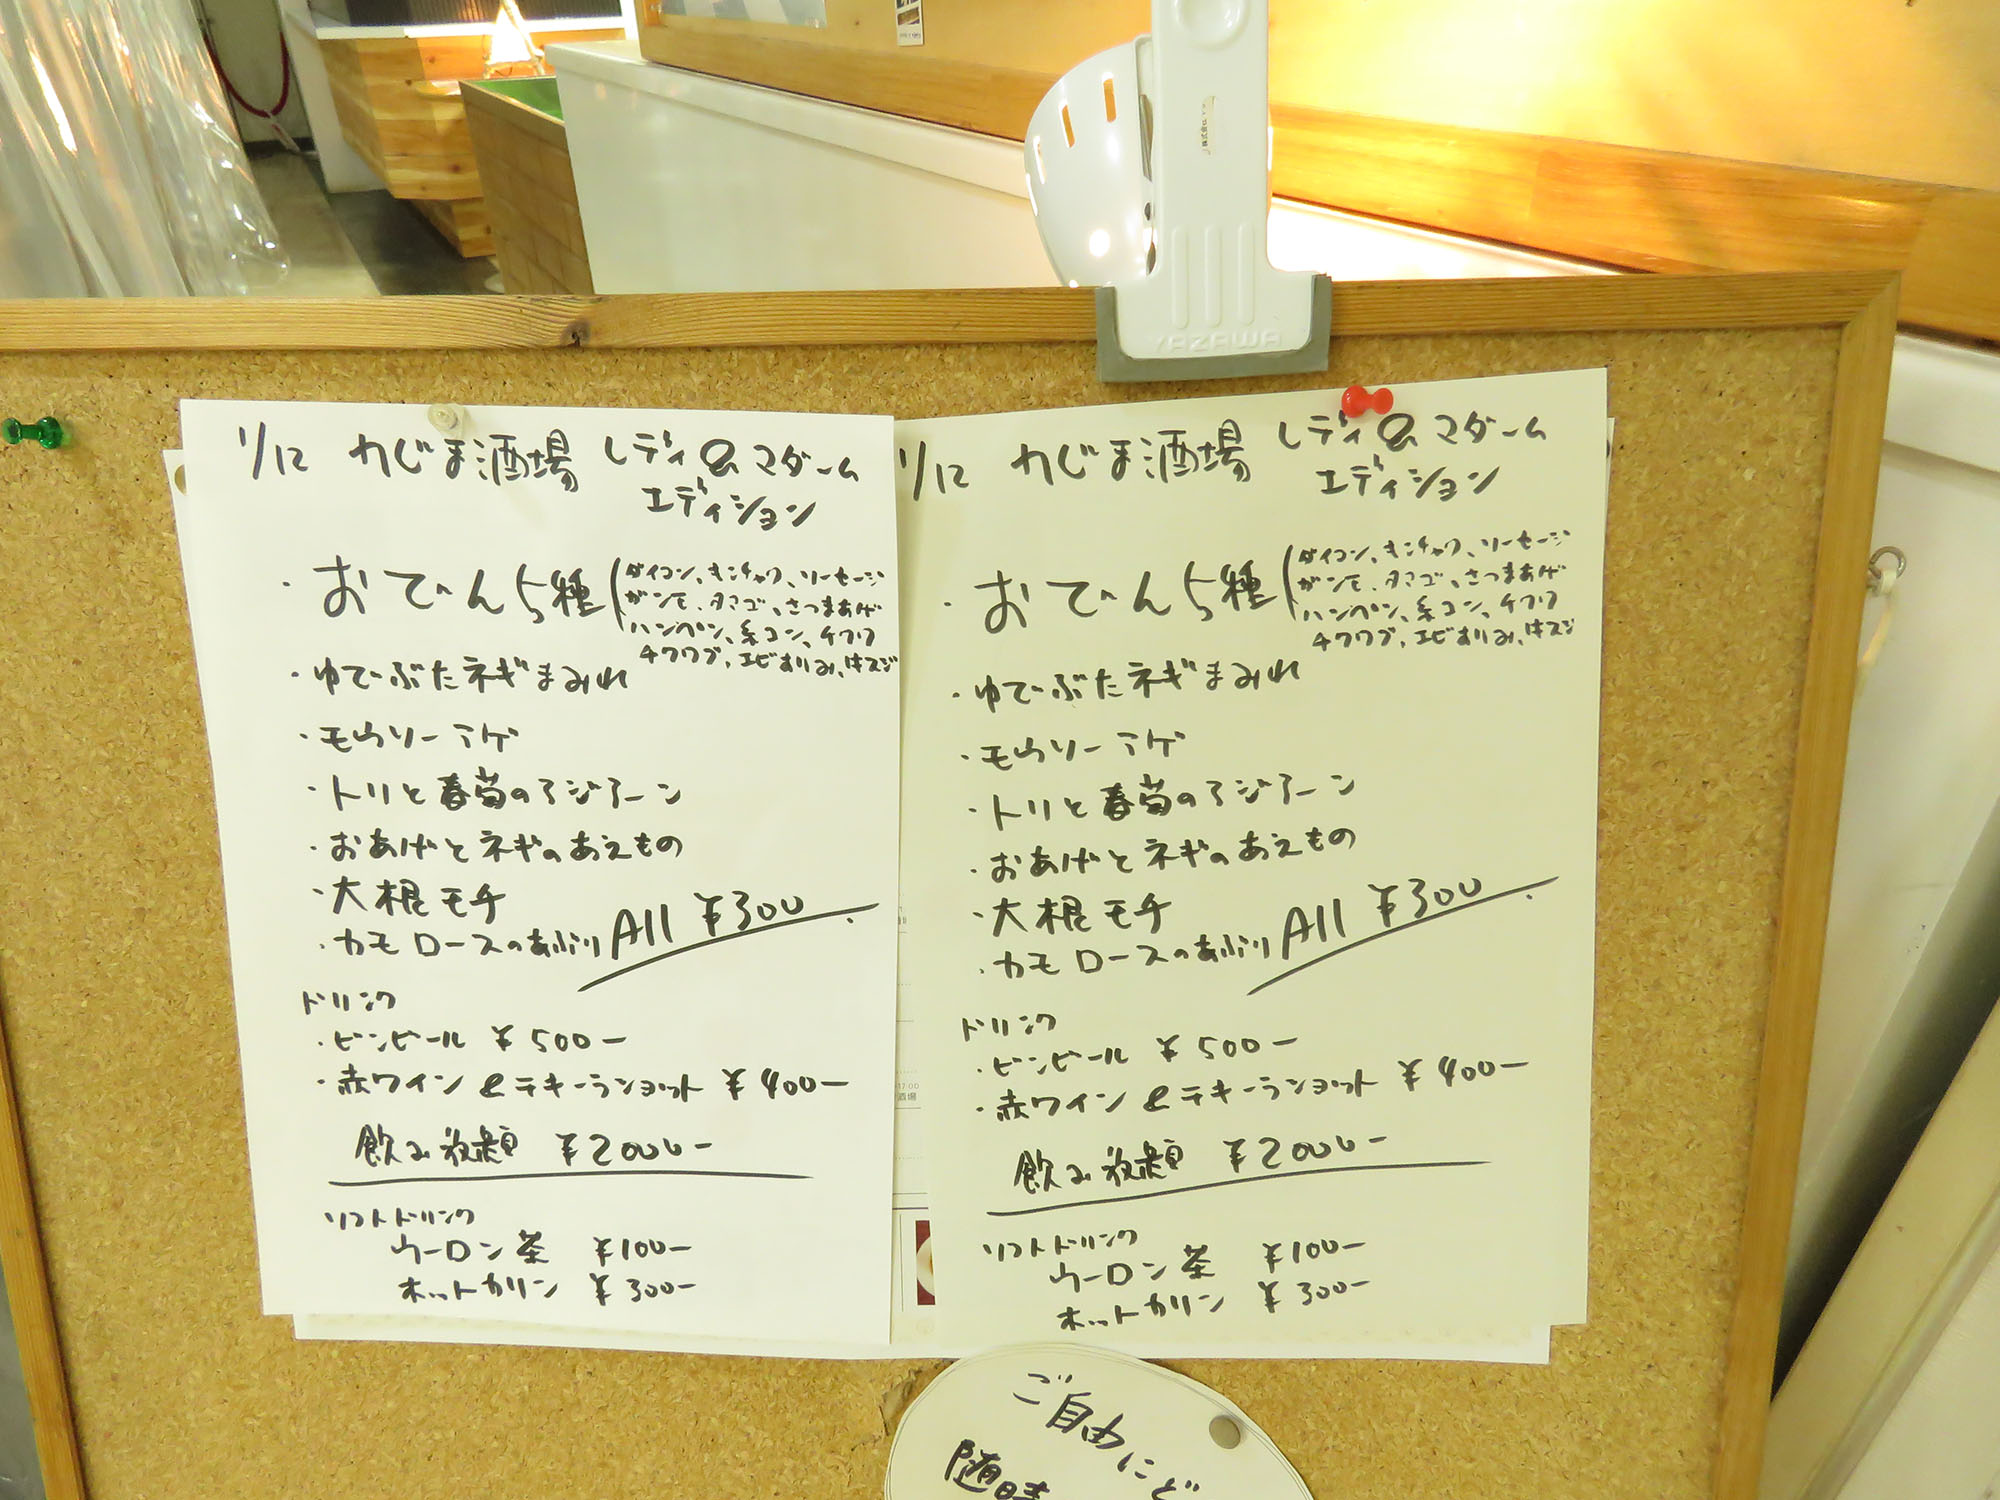 YAZAWA
1/12 わじま酒場 レディ&マダーム
エディション
・おでん5種
ダイコン、キンチャク、ソーセージ
ガンモ、タマゴ、さつまあげ
ハンペン、糸コン、チクワ
チクワブ、エビすりみ、牛スジ
・ゆでぶたネギまみれ
・モウソーアゲ
・トリと春菊のアジアーン
・おあげとネギのあえもの
・大根モチ
・カモロースのあぶり All ¥300
ドリンク
・ビンビール ¥500ー
・赤ワイン & テキーラショット ¥400ー
飲み放題 ¥2000ー
ソフトドリンク
ウーロン茶 ¥100ー
ホットカリン ¥300ー
1/12 わじま酒場 レディ&マダーム
エディション
・おでん5種
ダイコン、キンチャク、ソーセージ
ガンモ、タマゴ、さつまあげ
ハンペン、糸コン、チクワ
チクワブ、エビすりみ、牛スジ
・ゆでぶたネギまみれ
・モウソーアゲ
・トリと春菊のアジアーン
・おあげとネギのあえもの
・大根モチ
・カモロースのあぶり All ¥300
ドリンク
・ビンビール ¥500ー
・赤ワイン & テキーラショット ¥400ー
飲み放題 ¥2000ー
ソフトドリンク
ウーロン茶 ¥100ー
ホットカリン ¥300ー
17:00
酒場
ご自由にど
随時